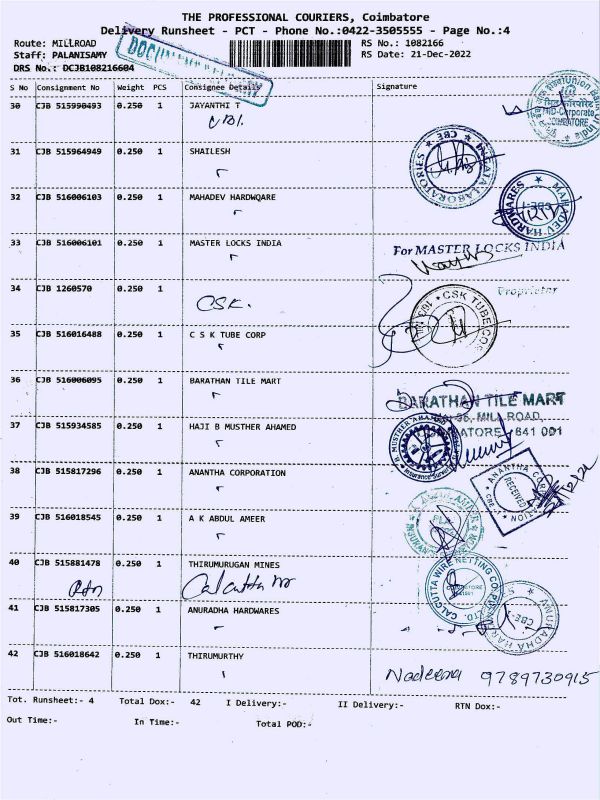 THE PROFESSIONAL COURIERS, Coimbatore
Delivery Runsheet - PCT - Phone No.:0422-3505555 - Page No.:4
Route: MILLROAD RS No.: 1082166
Staff: PALANISAMY RS Date: 21-Dec-2022
DRS No.: DCJB108216604
S No Consignment No Weight PCS Consignee Details Signature
30 CJB 515990493 0.250 1 JAYANTHI T
Union Bank of India
MID-Corporate
COIMBATORE
31 CJB 515964949 0.250 1 SHAILESH
LABORATORIES CBE
32 CJB 516006103 0.250 1 MAHADEV HARDWQARE
MAHADEV HARDWARES
CBE-1
33 CJB 516006101 0.250 1 MASTER LOCKS INDIA
For MASTER LOCKS INDIA
Proprietor
34 CJB 1260570 0.250 1
CSK.
CSK TUBE CORP
35 CJB 516016488 0.250 1 C S K TUBE CORP
36 CJB 516006095 0.250 1 BARATHAN TILE MART
BARATHAN TILE MART
MILL ROAD,
COIMBATORE - 641 001
37 CJB 515934585 0.250 1 HAJI B MUSTHER AHAMED
B. MUSTHER AHAMED
Insurance Surveyor
38 CJB 515817296 0.250 1 ANANTHA CORPORATION
ANANTHA CORPORATION
RECEIVED
CBE
39 CJB 516018545 0.250 1 A K ABDUL AMEER
A.K. ABDUL AMEER
40 CJB 515881478 0.250 1 THIRUMURUGAN MINES
Calcutta
CALCUTTA WIRE NETTING CO. PVT. LTD.
41 CJB 515817305 0.250 1 ANURADHA HARDWARES
ANURADHA HARDWARES
CBE-1
42 CJB 516018642 0.250 1 THIRUMURTHY
Nadeema 9789730915
Tot. Runsheet:- 4 Total Dox:- 42 I Delivery:- II Delivery:- RTN Dox:-
Out Time:- In Time:- Total POD:-